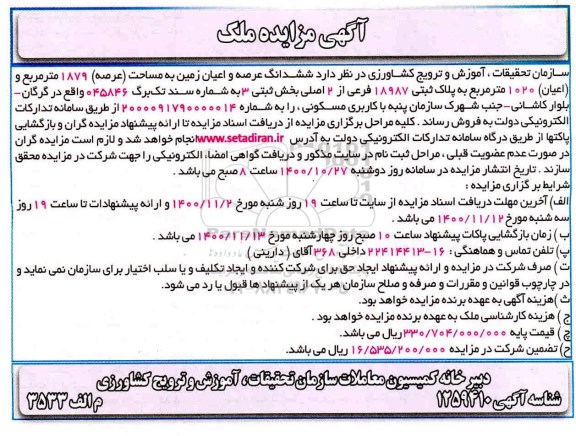 آگهی مزایده ملک
سازمان تحقیقات ، آموزش و ترویج کشاورزی در نظر دارد ششدانگ عرصه و اعیان زمین به مساحت (عرصه) ۱۸۷۹ مترمربع و
(اعیان) ۱۰۲۰ مترمربع به پلاک ثبتی ۱۸۹۸۷ فرعی از ۲ اصلی بخش ثبتی ۳ به شماره سند تک‌برگ ۰۴۵۸۴۶ واقع در گرگان-
بلوار کاشانی-جنب شهرک سازمان پنبه با کاربری مسکونی ، را به شماره ۲۰۰۰۰۹۱۷۹۰۰۰۰۰۱۴ از طریق سامانه تدارکات
الکترونیکی دولت به فروش رساند . کلیه مراحل برگزاری مزایده از دریافت اسناد مزایده تا ارائه پیشنهاد مزایده گران و بازگشایی
پاکتها از طریق درگاه سامانه تدارکات الکترونیکی دولت به آدرس www.setadiran.ir انجام خواهد شد و لازم است مزایده گران
در صورت عدم عضویت قبلی ، مراحل ثبت نام در سایت مذکور و دریافت گواهی امضاء الکترونیکی را جهت شرکت در مزایده محقق
سازند . تاریخ انتشار مزایده در سامانه روز دوشنبه ۱۴۰۰/۱۰/۲۷ ساعت ۸ صبح می باشد .
شرایط بر گزاری مزایده :
الف) آخرین مهلت دریافت اسناد مزایده از سایت تا ساعت ۱۹ روز شنبه مورخ ۱۴۰۰/۱۱/۲ و ارائه پیشنهادات تا ساعت ۱۹ روز
سه شنبه مورخ ۱۴۰۰/۱۱/۱۲ می باشد .
ب) زمان بازگشایی پاکات پیشنهاد ساعت ۱۰ صبح روز چهارشنبه مورخ ۱۴۰۰/۱۱/۱۳ می باشد .
پ) تلفن تماس و هماهنگی : ۱۶-۲۲۴۱۴۴۱۳ داخلی ۳۶۸ آقای ( دارینی )
ت) صرف شرکت در مزایده و ارائه پیشنهاد ایجاد حق برای شرکت کننده و ایجاد تکلیف و یا سلب اختیار برای سازمان نمی نماید و
در چارچوب قوانین و مقررات و صرفه و صلاح سازمان هر یک از پیشنهاد ها قبول یا رد می شود.
ث) هزینه آگهی به عهده برنده مزایده خواهد بود.
ج) هزینه کارشناسی ملک به عهده برنده مزایده خواهد بود .
چ) قیمت پایه ۳۳۰/۷۰۴/۰۰۰/۰۰۰ ریال می باشد.
ح) تضمین شرکت در مزایده ۱۶/۵۳۵/۲۰۰/۰۰۰ ریال می باشد.
دبیر خانه کمیسیون معاملات سازمان تحقیقات ، آموزش و ترویج کشاورزی
شناسه آگهی ۱۲۵۹۴۱۰ م الف ۳۵۳۳